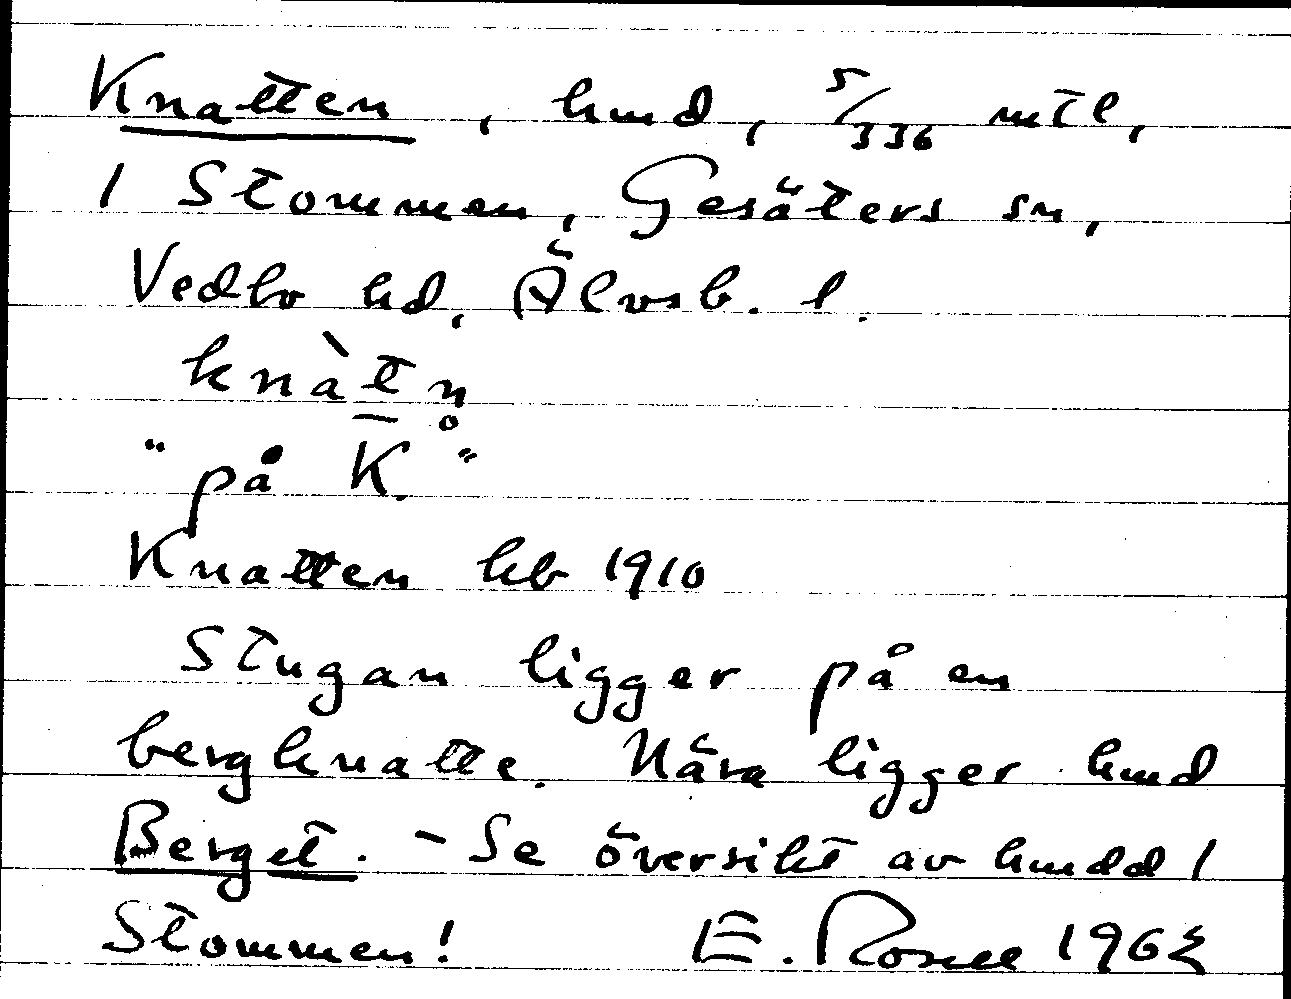 Knatten, hmd, 5/336 mtl,
1 Stommen, Gesäters sn,
Vedbo hd, Älvsb. l.
knàt̲n̥
"på K."
Knatten kb 1910
Stugan ligger på en
bergknatte. Nära ligger hmd
Berget. - Se översikt av hmdd 1
Stommen! E. Rosell 1962